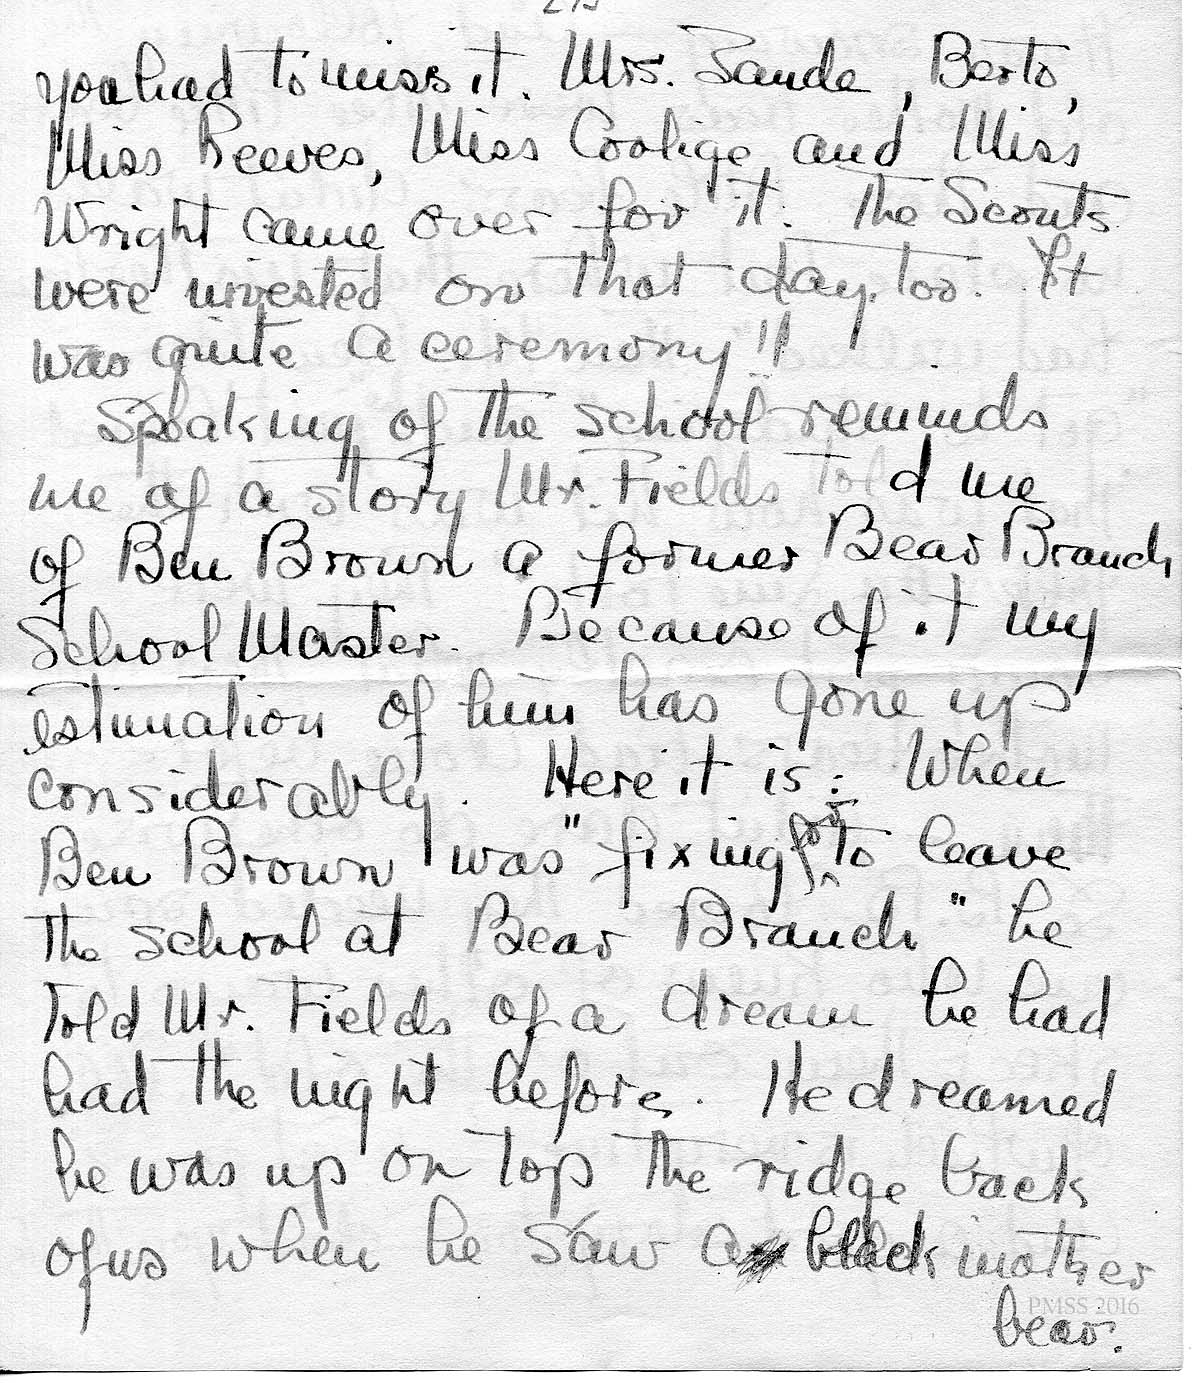 you had to miss it. Mrs. Zande, Berto,
Miss Reeves, Miss Coolige and Miss
Wright came over for it. The Scouts
were invested on that day, too. It
was quite a ceremony!!
Speaking of the school reminds
me of a story Mr. Fields told me
of Ben Brown a former Bear Branch
School Master. Because of it my
estimation of him has gone up
considerably. Here it is: When
Ben Brown was "fixing for to leave
the school at Bear Branch" he
told Mr. Fields of a dream he had
had the night before. He dreamed
he was up on top the ridge back
of us when he saw a black mother
bear.
PMSS 2016